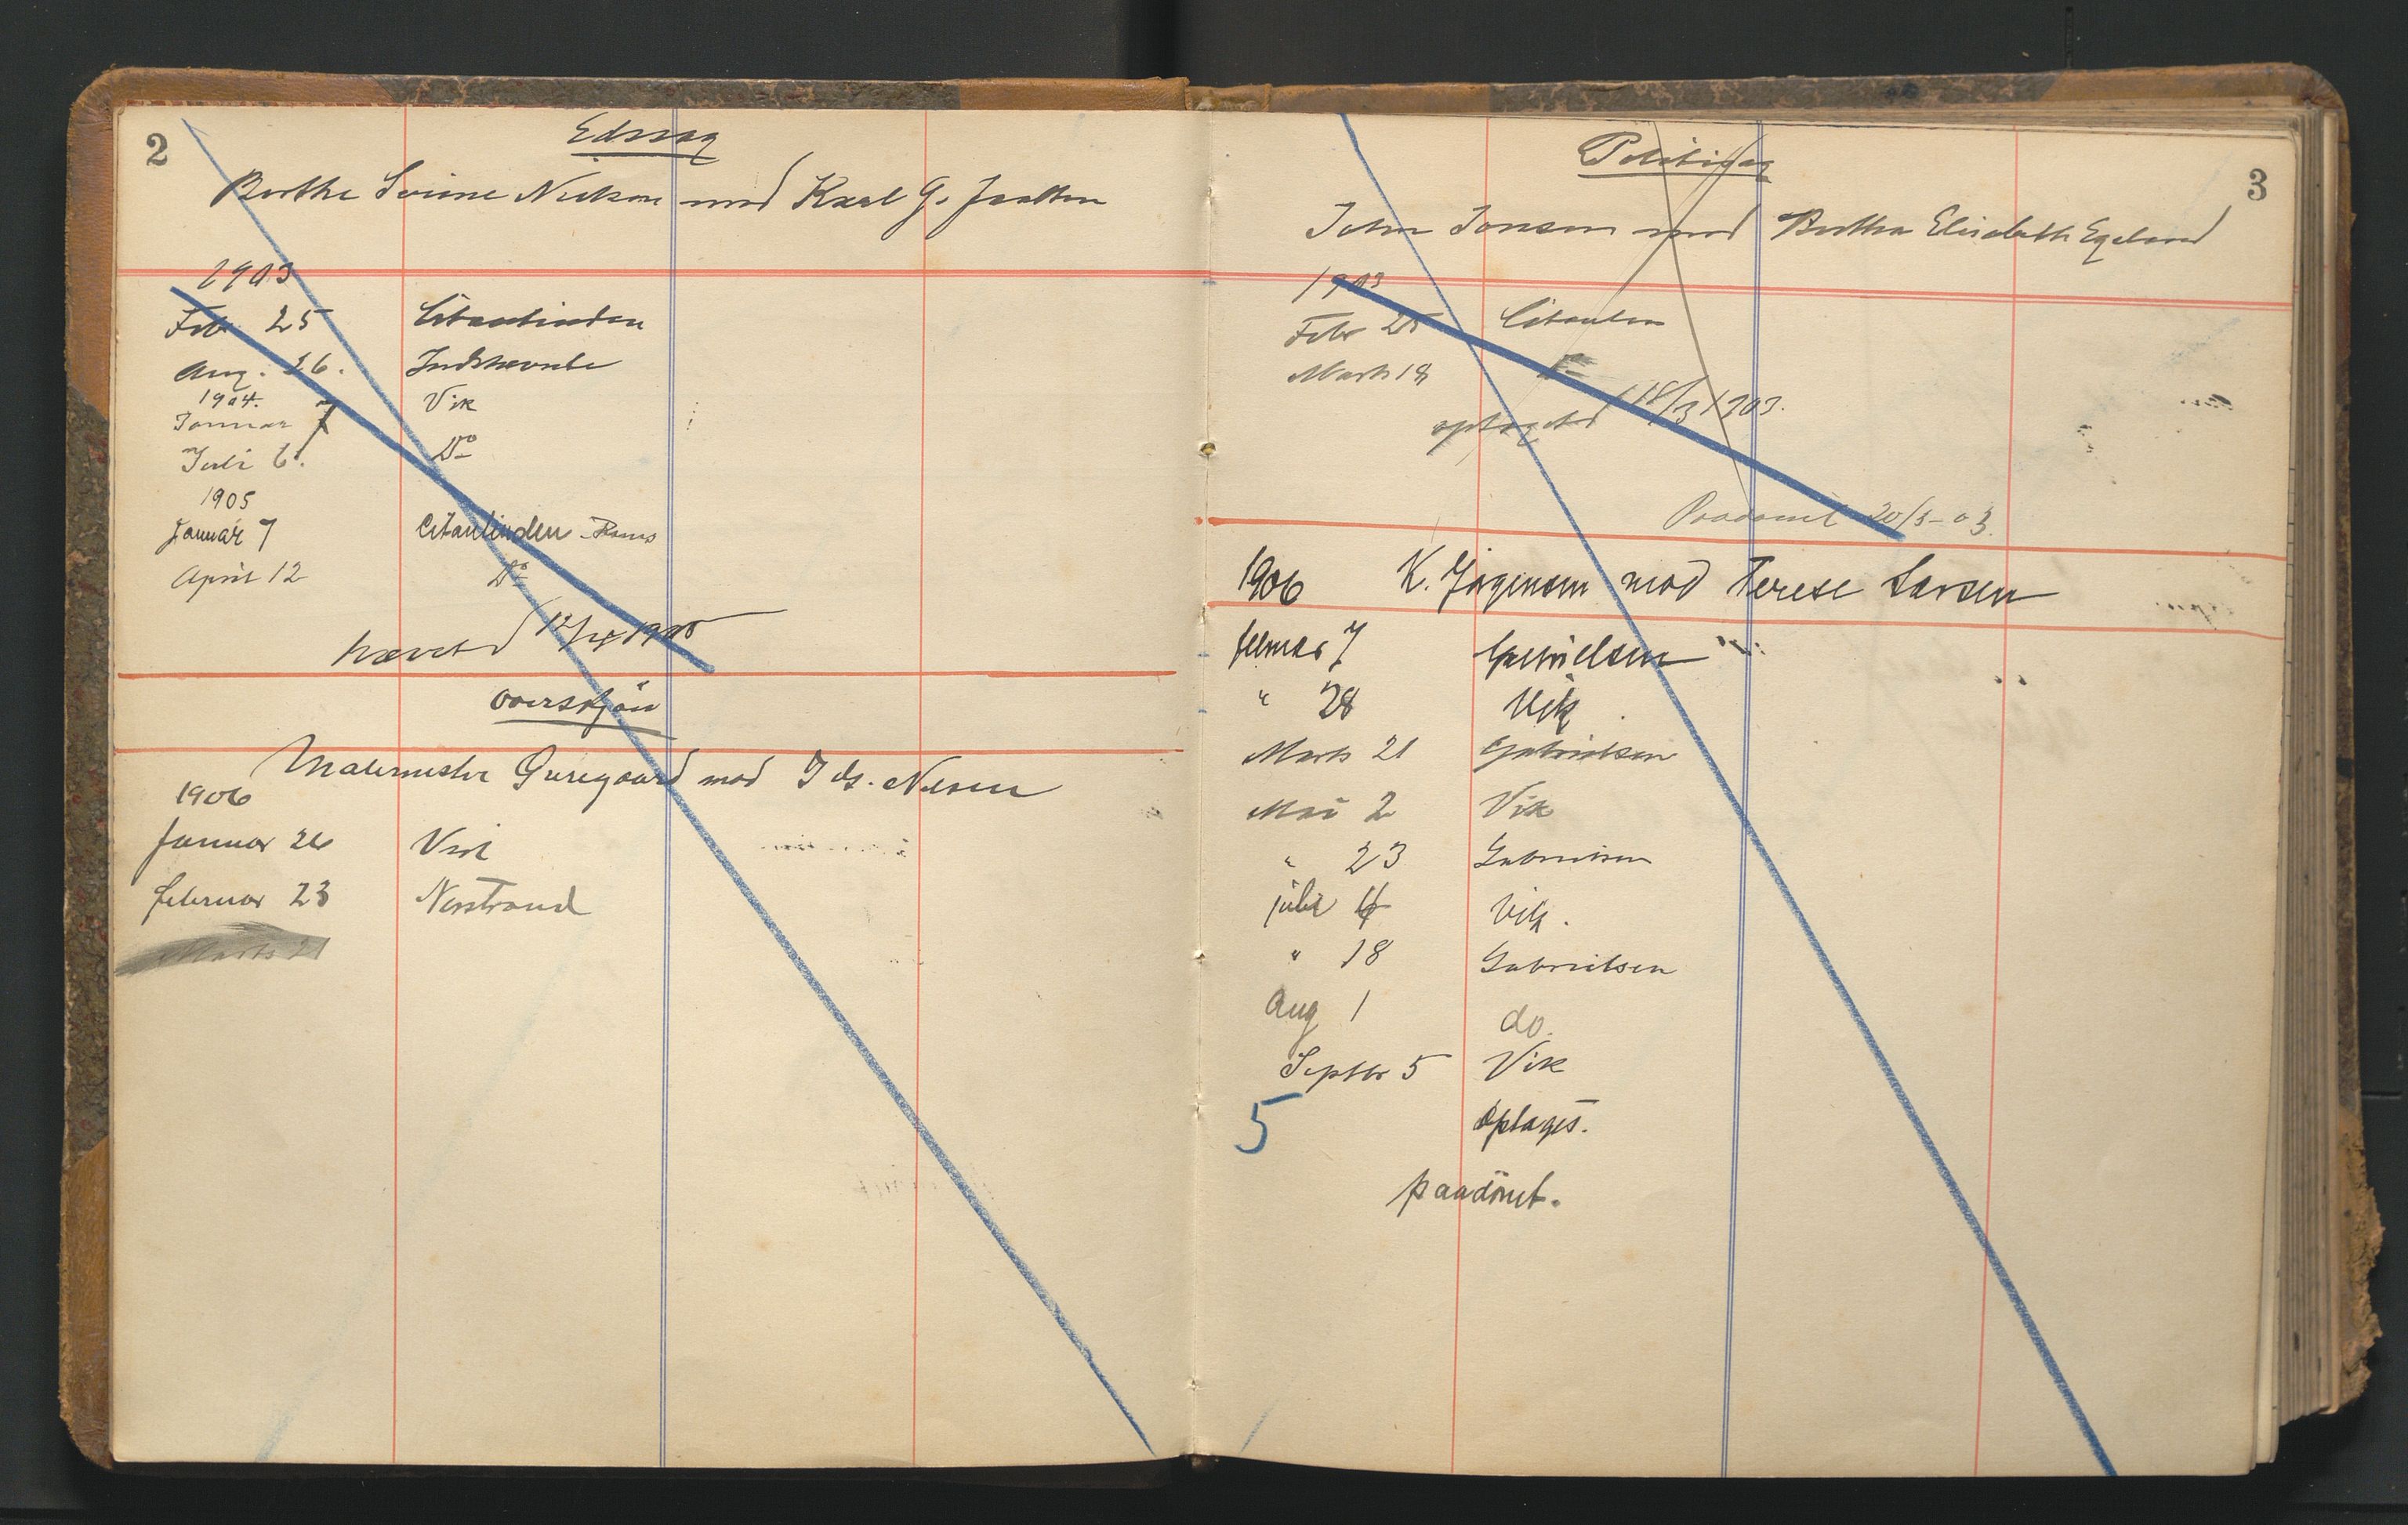 2
Edssag
Berthe Serine Nielsen mod Karl G. Jaatten
1903
Febr. 25 Citantinden
Aug. 26. Indstevnte
1904.
Januar 7 Vik
Juli 6. Do
1905
Januar 7 Citantinden
April 12 Do
hævet d 12/4 1905
Overskjön
Malermester Guregaard mod Nilsen
1906
Januar 26 Vik
februar 23 Nerstrand
Marts 21
3
Politisag
John Jonsen mod Bertha Elisabeth Egeland
1903
Febr 25 Citanten
Marts 18
optaget d 18/3 1903.
Paadömt 20/3-03.
1906 K. Jörgensen mod Terese Larsen
februar 7 Gabrielsen
" 28 Vik
Marts 21 Gabrielsen
Mai 2 Vik
" 23 Gabrielsen
juli 4 Vik.
" 18 Gabrielsen
Aug 1 do.
Septbr 5 Vik
5 Optages.
paadömt.